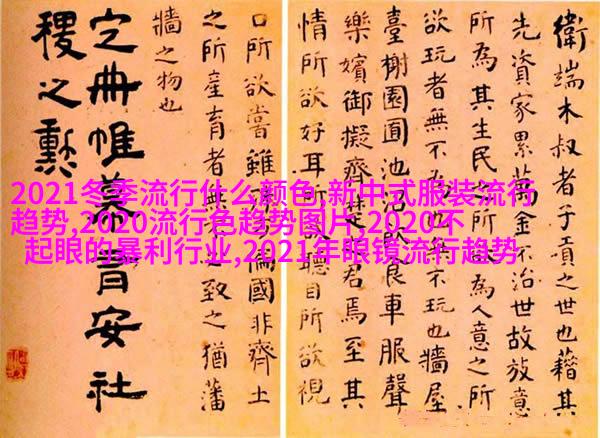 衛端木叔者子貢之世也藉其
先資家累萬金不治世故放意
所為其生民之所為人意之所
欲玩者無不為也無不玩也牆屋
臺榭園囿池沼車服聲
樂嬪御擬齊之君焉至其
情所欲好耳所欲聽目所欲視
口所欲嘗雖偏國非齊土
之所產育者無不必致之猶藩
牆之物也
定冊帷幕有安社
稷之勳
2021冬季流行什么颜色,新中式服装流行
趋势,2020流行色趋势图片,2020不
起眼的暴利行业,2021年眼镜流行趋势